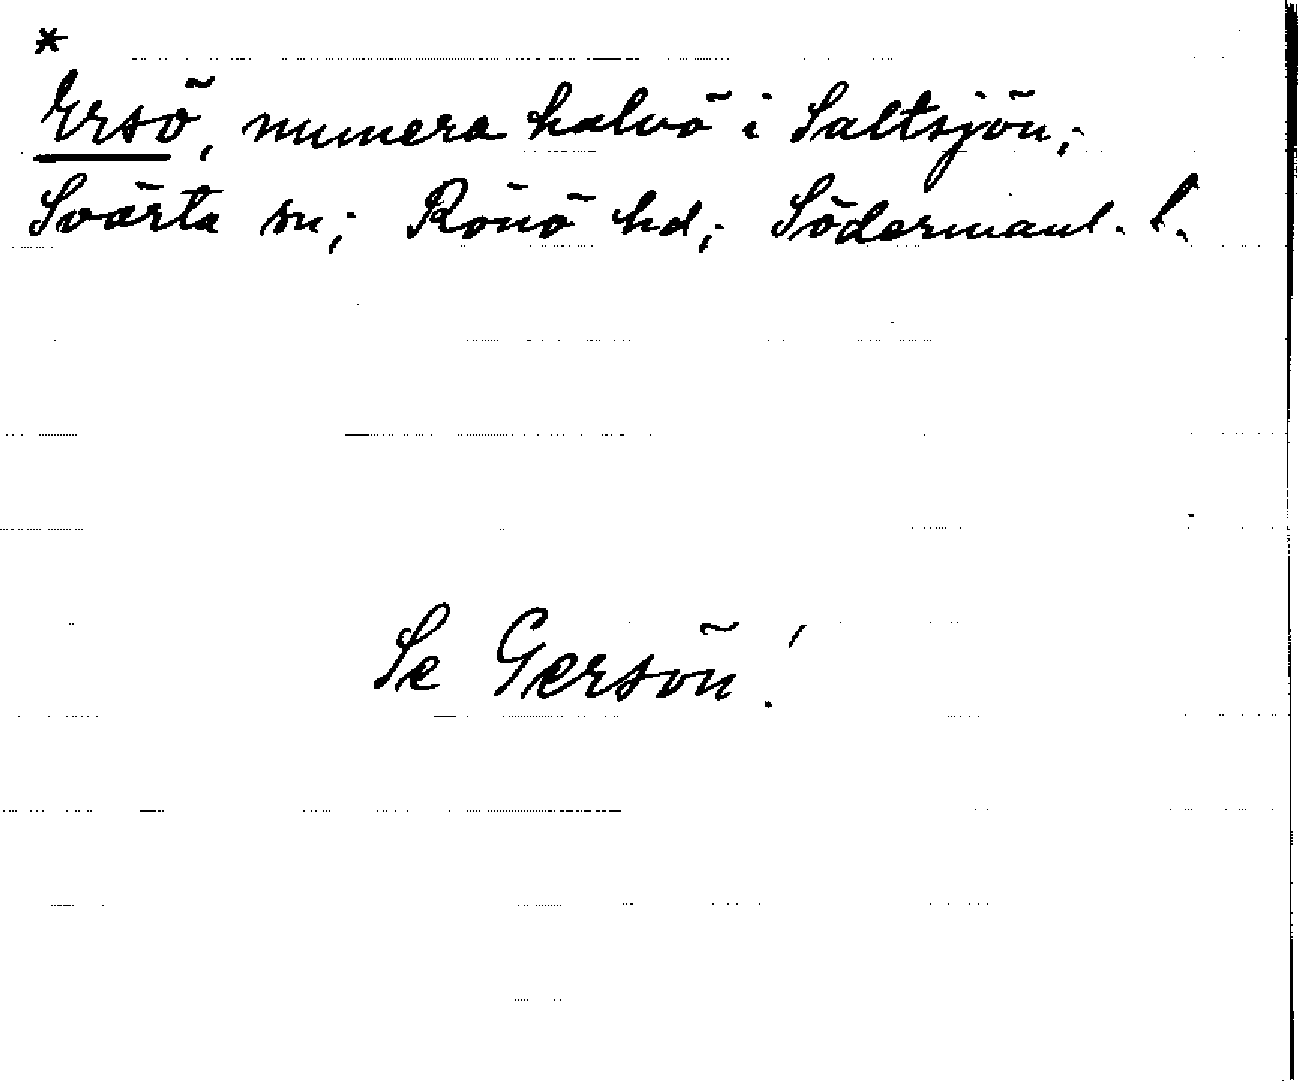 *
Ersö, numera halvö i Saltsjön;
Svärta sn; Rönö hd; Södermanl. l.
Se Gersön!